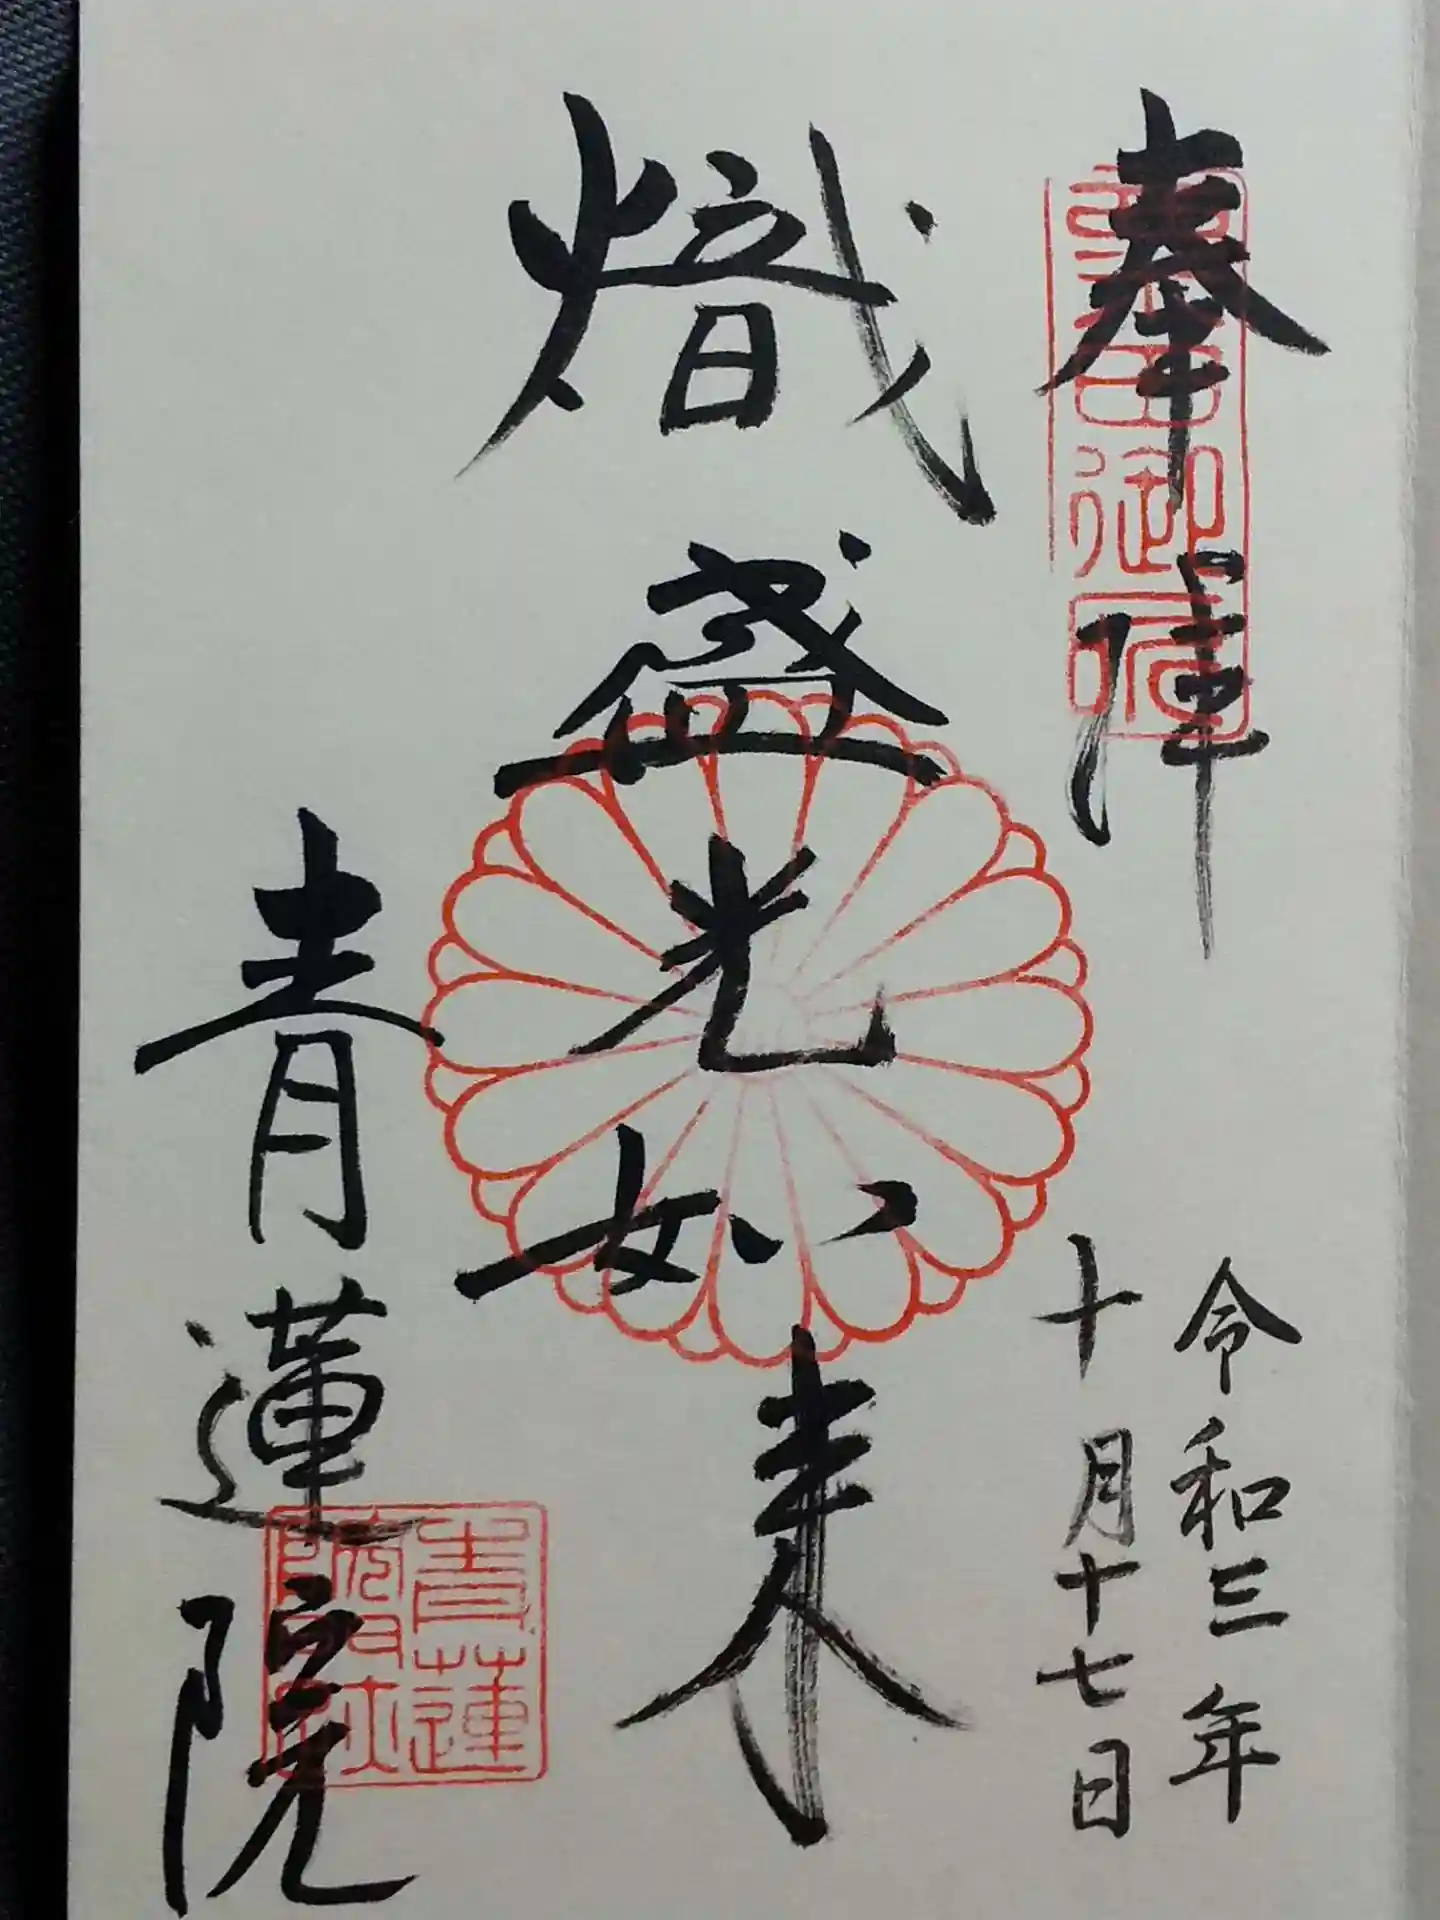 奉拝
粟田御所
令和三年
十月十七日
熾盛光如来
青蓮院
青蓮
院門跡